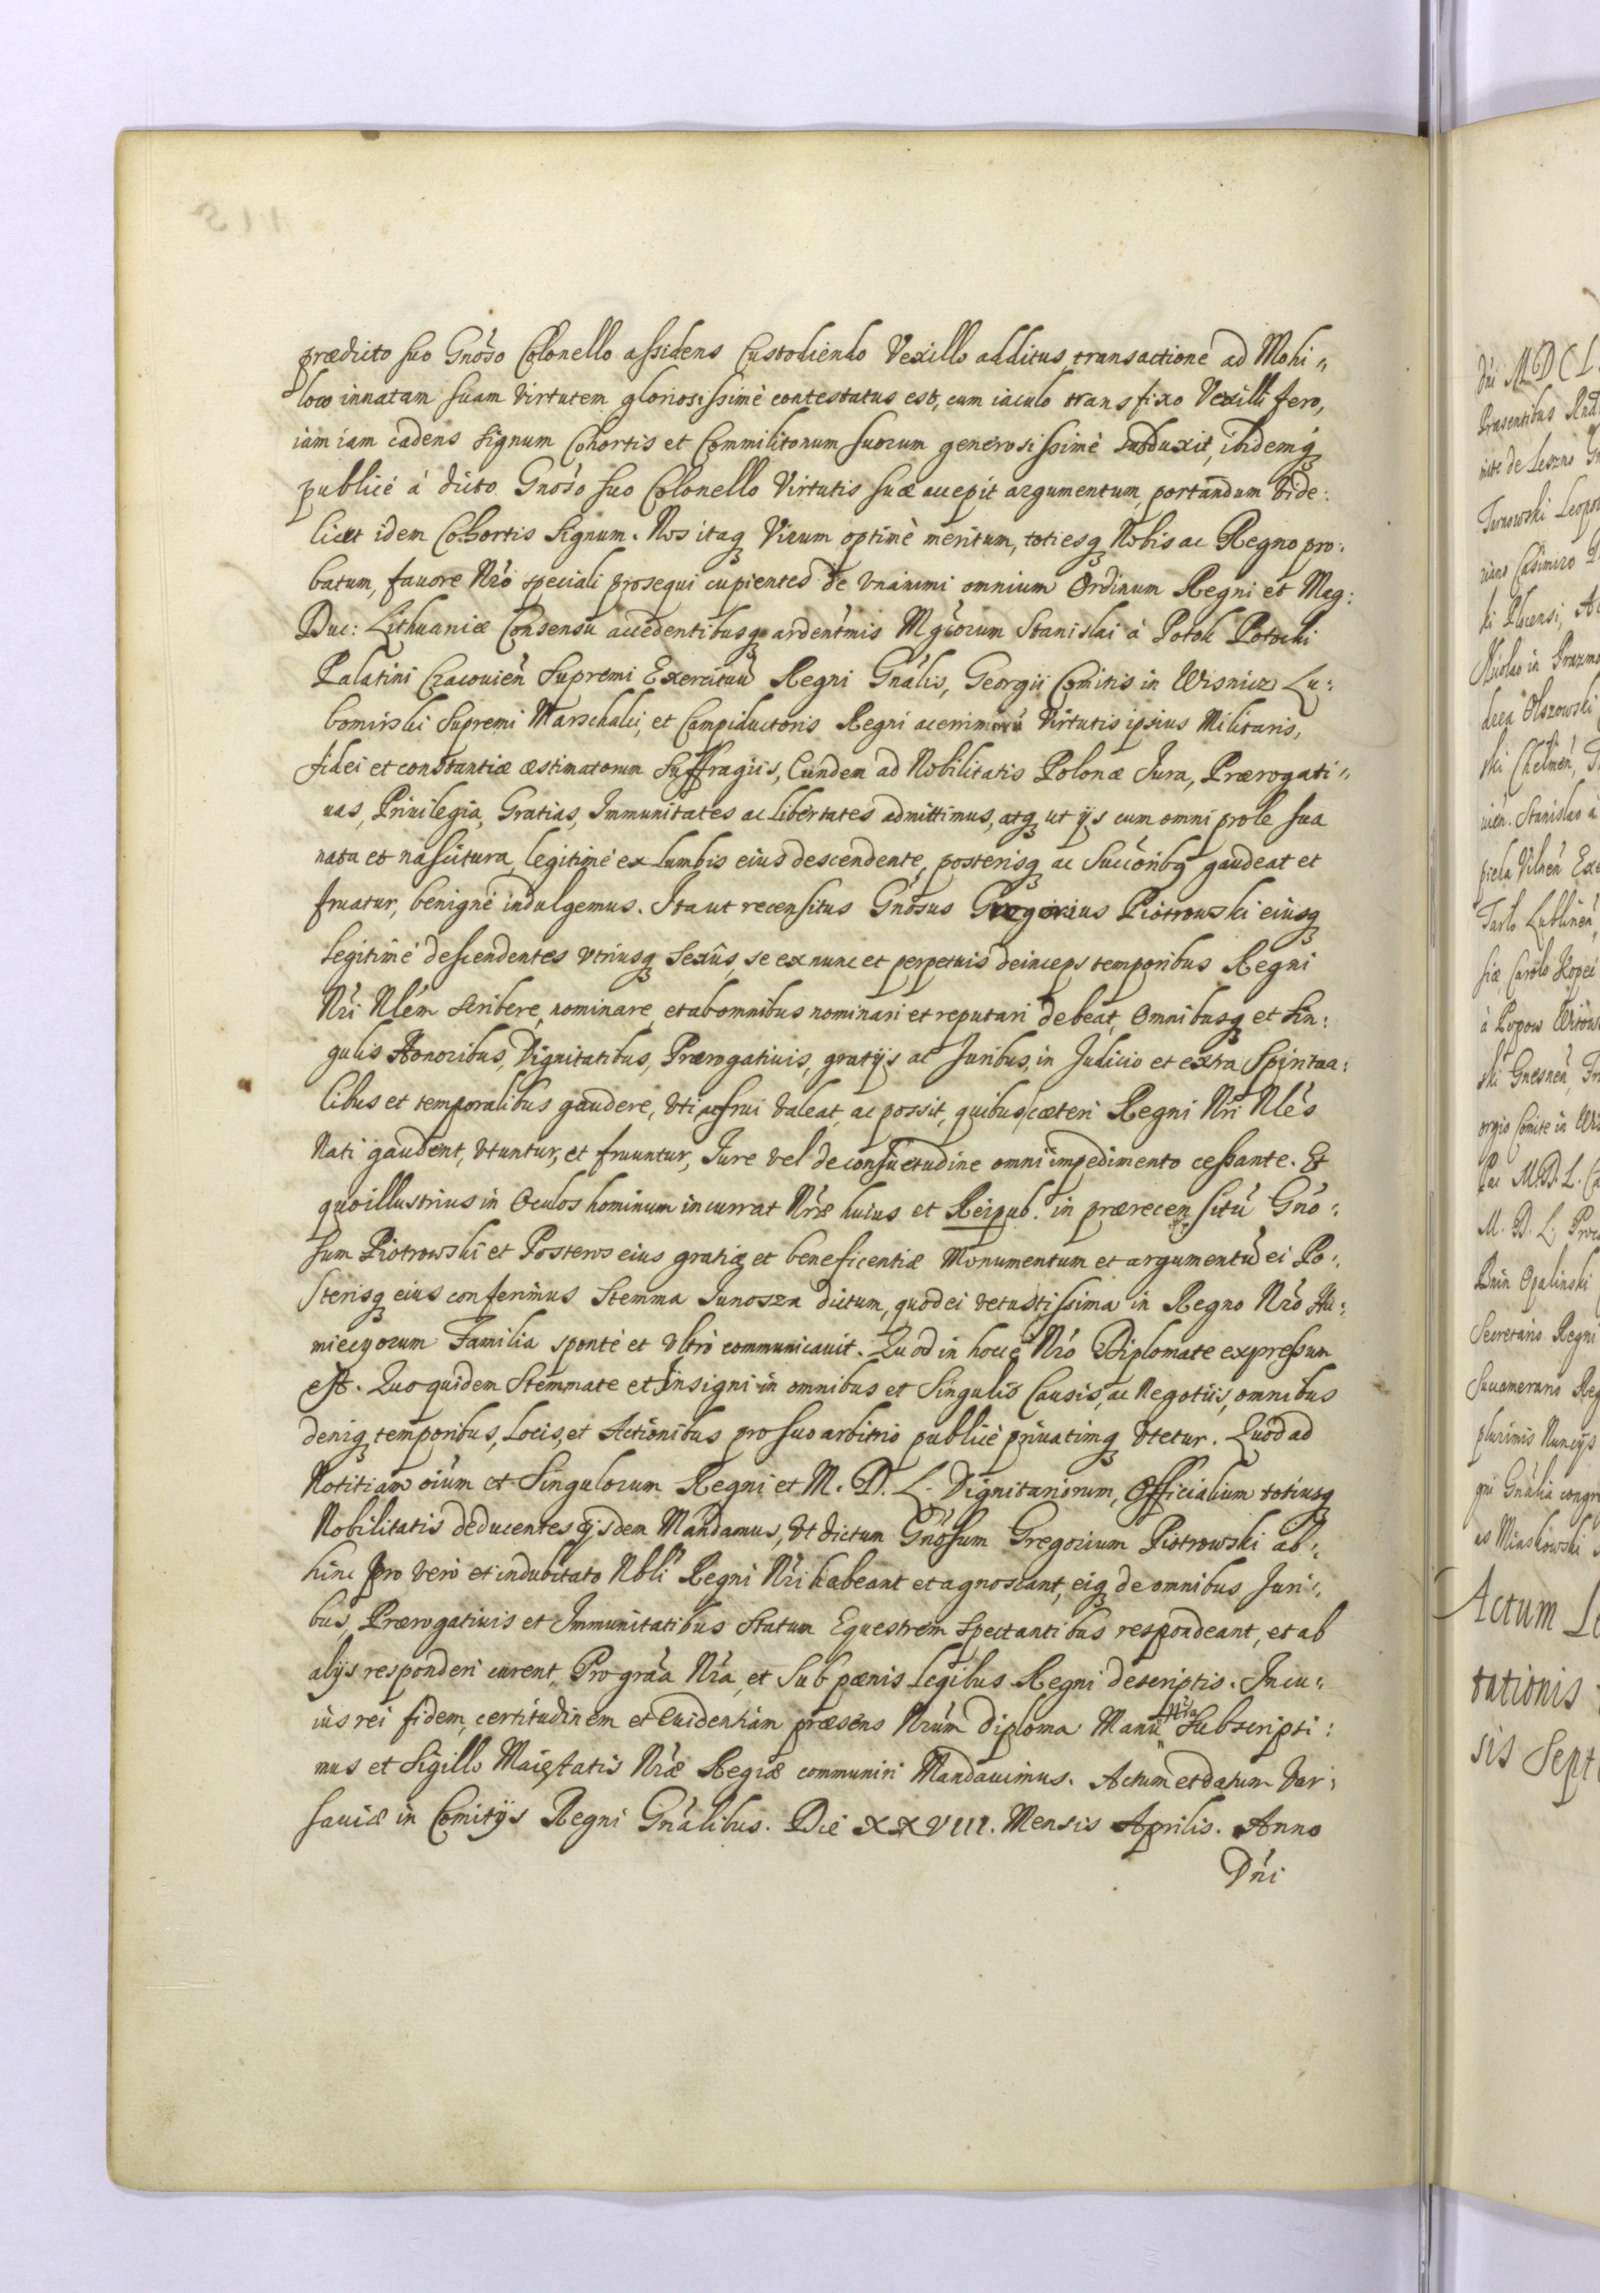 prædicto suo Gnoso Colonello assidens Custodiendo Vexillo additus, transactione ad Mohi„
loco innatam suam virtutem gloriosissimè contestatus est, cum iaculo transfixo Vexillifero,
iam iam cadens signum Cohortis et Commilitonum suorum generosissimè subduxit, ibidemq
publicè à dicto Gnoso suo Colonello Virtutis suæ accepit argumentum portandum vide:
licet idem Cohortis signum. Nos itaq Virum optimè meritum, totiesq Nobis ac Regno pro:
batum, favore Nro speciali prosequi cupientes de vnanimi omnium Ordinum Regni et Mag:
Duc: Lithuaniæ Consensu accedentibusq ardentmis Mgcorum Stanislai à Potok Potocki
Palatini Cracouien Supremi Exercituũ Regni Gnalis, Georgii Comitis in Wisnicz Lu:
bomirski Supremi Marschalci, et Campiductoris Regni acerrimorũ Virtutis ipsius Militaris,
fidei et constantiæ æstimatorum Suffragiis, Eundem ad Nobilitatis Polonæ Jura, Prærogati„
uas, Priuilegia, Gratias, Immunitates ac libertates admittimus, atq ut ijs cum omni prole sua
nata et nascitura legitimè ex Lumbis eius descendente, posterisq ac Succoribq gaudeat et
fruatur, benignè indulgemus. Ita ut recensitus Gnosus Gregorius Piotrowski eiusq
legitimè descendentes vtriusq sexûs, se ex nunc et perpetuis deinceps temporibus Regni
Nri Nlem scribere, nominare, et ab omnibus nominari et reputari debeat, Omnibusq et Sin:
gulis Honoribus, Dignitatibus, Prærogatiuis, gratijs ac Juribus, in Judicio et extra Spiritua:
libus et temporalibus gaudere, vti ac frui valeat, ac possit, quibus cæteri Regni Nri Nles
Nati gaudent, vtuntur, et fruuntur, Jure vel de consuetudine omni impedimento cessante. Et
quo illustrius in Oculos hominum incurrat Nræ huius et Reipub. in prærecensitũ Gno:
sum Piotrowski et Posteros eius gratiæ et beneficentiæ Monumentum et argumentũ ei Po:
sterisq eius conferimus Stemma Junosza dictum, quod ei vetustissima in Regno Nro Hu:
miecyorum Familia spontè et vltrò communicauit. Quod in hocce Nro Diplomate expressum
est. Quo quidem Stemmate et Insigni in omnibus et Singulis Causis, ac Negotiis, omnibus
deniq temporibus, Locis, et Actionibus pro suo arbitrio publicè priuatimq vtetur. Quod ad
Notitiam oium et Singulorum Regni et M. D. L. Dignitariorum, Officialium totiusq
Nobilitatis deducentes ijsdem Mandamus, Vt dictum Gnosum Gregorium Piotrowski ab:
hinc pro vero et indubitato Nbli Regni Nri habeant et agnoscant, eiq de omnibus Juri:
bus, Prærogatiuis et Immunitatibus Statum Equestrem spectantibus respondeant, et ab
alijs responderi curent, Pro graa Nra, et Sub pænis legibus Regni descriptis. In cu„
ius rei fidem, certitudinem et Euidentiam præsens Nrum diploma Manũ Nra Subscripsi:
mus et Sigillo Maiestatis Nræ Regiæ communiri Mandauimus. Actum et datum Var:
sauiæ in Comitijs Regni Gnalibus. Die XXVIII. Mensis Aprilis. Anno
Dni
Dni MDCL
Præsentibus
de Leszno
Casimiro
Stanislao à
Vilnen
Tarlo Lublinen
Carolo Kopec
Gnesnen
Comite in
Pac M.D.L.
M. D. L.
Bnin Opalinski
Secretario Regni
Succamerario Reg
plurimis Nuncijs
Miaskowski
Actum
tationis
sis Sept